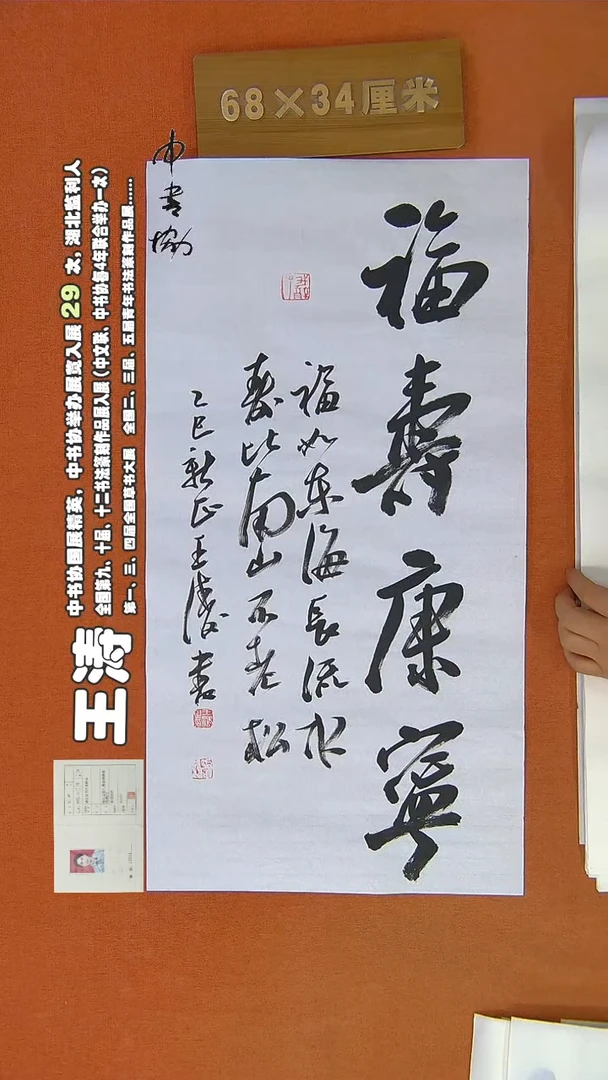 68×34厘米
中书协
福寿康宁
福如东海长流水
寿比南山不老松
乙巳新正王涛书
王涛
中书协国展精英，中书协举办展览入展 29 次，湖北监利人
全国第九、十届、十二书法篆刻作品展入展（中文联、中书协每4年联合举办一次）
第一、三、四届全国草书大展 全国二、三届、五届青年书法篆刻作品展......